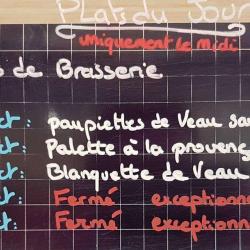 Plats du Jour
uniquement le midi
s de Brasserie
ct: paupiettes de Veau sau
ct: Palette à la provenç
ct: Blanquette de Veau
ct: Fermé exceptionne
ct: Fermé exceptionne